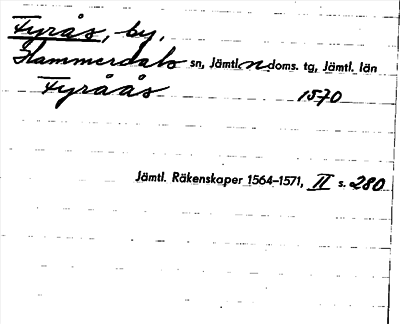 Fyrås, by,
Hammerdals sn, Jämtl. n doms. tg, Jämtl. län
Fyråås 1570
Jämtl. Räkenskaper 1564-1571, II s. 280